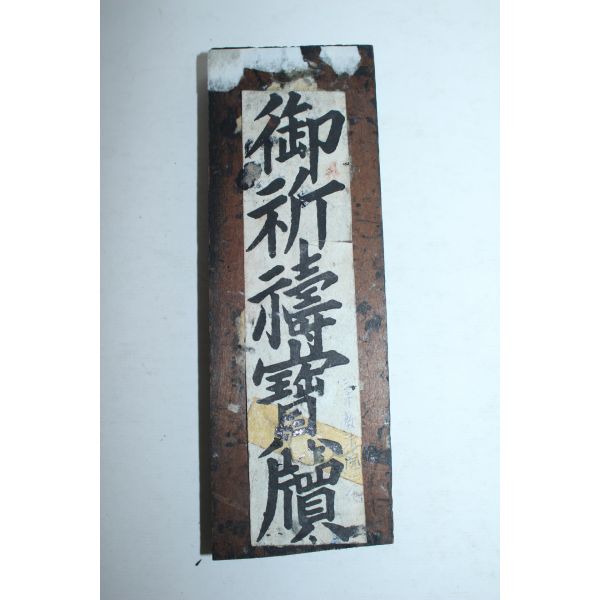 御祈禱寶牘